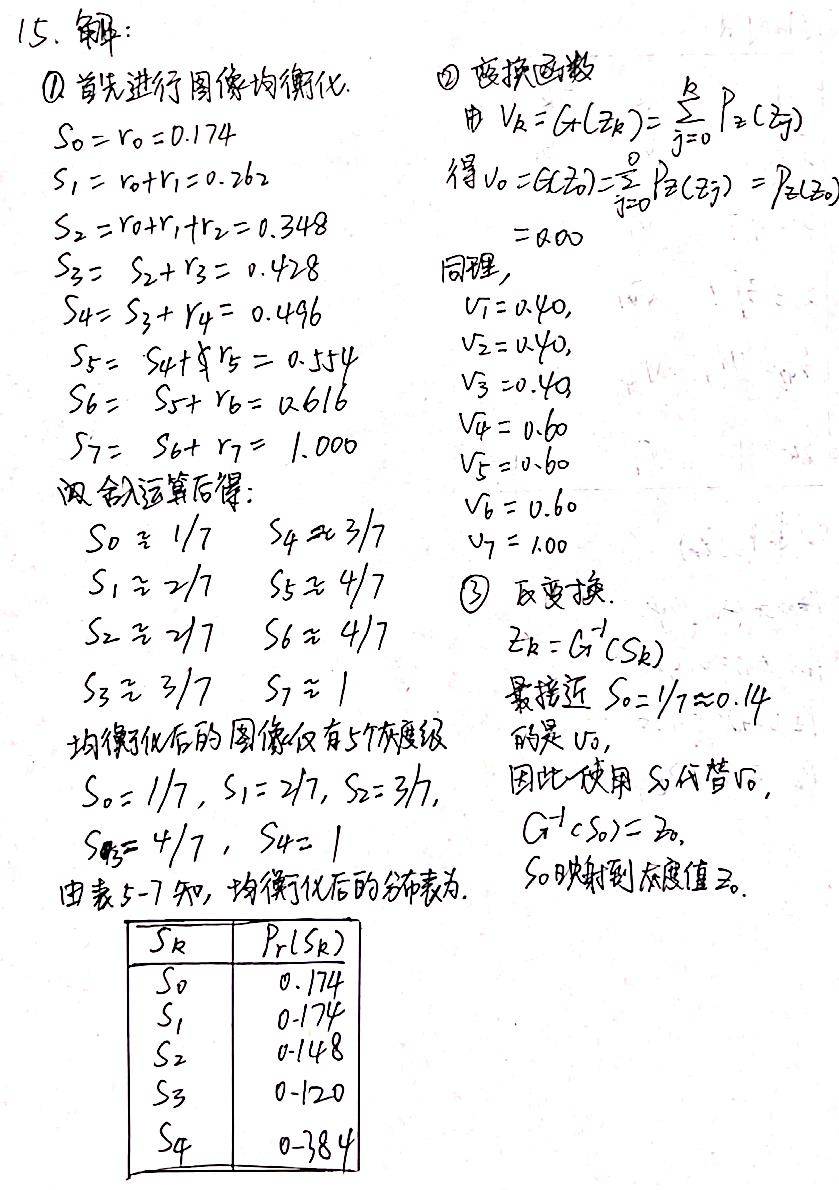 15. 解:
① 首先进行图像均衡化.
S0 = r0 = 0.174
S1 = r0+r1 = 0.262
S2 = r0+r1+r2 = 0.348
S3 = S2+r3 = 0.428
S4 = S3+r4 = 0.496
S5 = S4+r5 = 0.554
S6 = S5+r6 = 0.616
S7 = S6+r7 = 1.000
舍入运算后得:
S0 ≈ 1/7 S4 ≈ 3/7
S1 ≈ 2/7 S5 ≈ 4/7
S2 ≈ 2/7 S6 ≈ 4/7
S3 ≈ 3/7 S7 ≈ 1
均衡化后的图像仅有5个灰度级
S0 = 1/7, S1 = 2/7, S2 = 3/7,
S3 = 4/7, S4 = 1
由表5-7知, 均衡化后的分布表为.
Sk Pr(Sk)
S0 0.174
S1 0.174
S2 0.148
S3 0.120
S4 0.384
② 变换函数
由 Vk = G(Zk) = Σ_{j=0}^{k} Pz(Zj)
得 V0 = G(Z0) = Σ_{j=0}^{0} Pz(Zj) = Pz(Z0)
= 0.00
同理,
V1 = 0.40,
V2 = 0.40,
V3 = 0.40,
V4 = 0.60
V5 = 0.60
V6 = 0.60
V7 = 1.00
③ 反变换.
Zk = G⁻¹(Sk)
最接近 S0 = 1/7 ≈ 0.14
的是 V0,
因此使用 S0 代替 V0,
G⁻¹(S0) = Z0,
S0映射到灰度值 Z0.